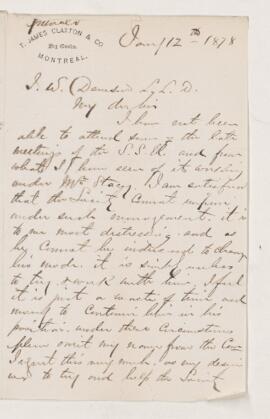 T. JAMES CLAXTON & CO
Dry Goods.
MONTREAL.
Jany 12th 1878
J. W. Dawson L. L. D.
My dr Sir
I have not been
able to attend some of the late
meetings of the S.S. and from
what I have seen of its working
under Mr Stacy. I am satisfied
that the Society cannot
under such management. it is
to me most distressing. and as
he cannot be induced to change
his mode. it is useless
to try & work with him. I feel
it is just a waste of time and
money to continue him in his
position under these circumstances
please omit my name from the Com
I regret this very much. as my desire
was to try and help the Society